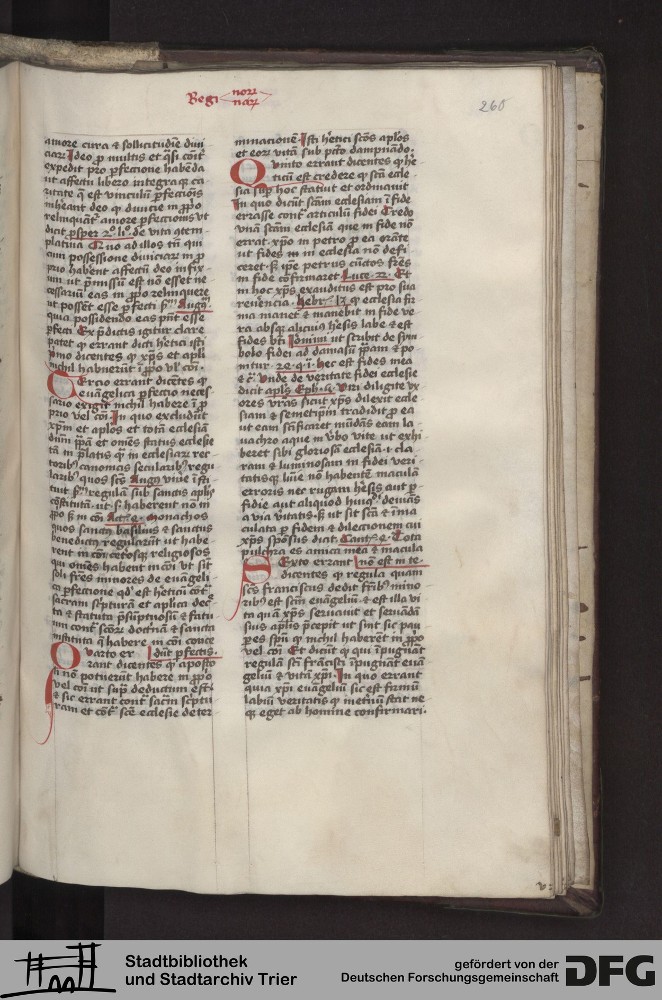 Begi norū
narū
260
amore cura & sollicitudīe diui
ciaꝝ Ideo p̄ multis et q̄si cōīt̄
expedit pro p̄fectione habēda
ut affectu libero integra qꝫ ca
ritate q̄ est vinculū p̄fectiōis
inheant deo qꝫ diuicie in p̄p̄o
relinquāt᷑ amore p̄fectionis vt
dicit p̄sper
platiua
cum possessione diuiciaꝝ in p̄
prio habent affectū deo infix
um ut p̄missū est nō esset ne
cessariū eas in p̄p̄o relinquere
ut possēt esse p̄fecti Augꝰ
quia possidendo eas pn̄t esse
p̄fecti Ex p̄dictis igitur clare
patet qꝫ errant dicti hētici isti
p̄mo dicentes qꝫ xp̄s et apl̄i
nichil habuerūt ī p̄p̄o vl̓ cōi
Tercio errant dicētes qꝫ
euāgelica p̄fectio neces
sario exigit nichil habere ī p̄
prio vel cōi In quo excludūt
xp̄m et aplōs et totā ecclesiā
dūm p̄pā et om̄es status ecclesie
tā in p̄latis qꝫ in ecclesiaꝝ rec
toribꝰ canonicis secularibꝰ regu
laribꝰ quos scꝰ Augꝰ viue ī sti
tuit regulā sub sanctis apl̄is
cōstitutā ut sͥ haberent nō in
p̄p̄o sꝫ in cōi Monachos
quos sanctꝰ basilius & sanctus
benedictꝰ regularūt ut habe
rent in cōi ceterosqꝫ religiosos
qui om̄es habent in cōi vt sit
soli fr̄es minores de euāgeli
ca p̄fectione qd̓ est hēticū cōt᷑
sacram sc̓pturā et aplica dec̓
ta & statuta p̄sūptuosū & fatu
um cont᷑ scōꝝ doctnā & sancta
instituta q̄ habere in cōi conce
Quarto er dūt p̄fectis
rant dicentes qꝫ aposto
li nō potuerūt habere in p̄p̄o
vel cōi ut sup̄ deductum est
& sic errant cont᷑ sac̄m sc̓ptu
ram et cōt᷑ scē ecclesie deter
minacionē Isti hētici scōs aplōs
et eoꝝ vitā sub pctō dampnādo
Quinto errant dicētes qꝫ hē
ticū est credere qꝫ scā eccle
sia suꝑ hoc statuit et ordinauit
In quo dicūt scām ecclesiam ī fide
errasse cont᷑ articulū fidei Credo
vnā scam ecclesiā que in fide nō
errat xp̄o in petro p̄ ea orāte
ut fides in in ecclesia nō defi
ceret sꝫ ip̄e petrus cūctos fr̄es
in fide cōfirmaret Luce Et
in hoc xp̄s exauditus est pro sua
reuēncia Hebr̄ qꝫ ecclesia fir
ma manet & manebit in fide ve
ra absqꝫ alicuiꝰ hēsis labe & est
fides bt̄i Ieronimi ut scribit de sim
bolo fidei ad damasiū p̄pam & po
nitur hec est fides mea
&c̄ vnde de veritate fidei ecclesie
dicit apl̄s Eph viri diligite vx
ores vrās sicut xp̄s dilexit eccle
siam & semetip̄m tradidit p̄ ea
ut eam scīficaret mūdās eam la
uachro aque in v̓bo vite ut exhi
beret sibi gloriosā ecclesiā .i. cla
ram & luminosam in fidei veri
tatisqꝫ luīe nō habentē maculā
erroris nec rugam hēsis aut p̄
fidie aut aliquod huiꝰ deuiās
a via vitatis sꝫ ut sit scā & īma
culata p̄ fidem & dilectionem cui
xp̄s spōsus dicit Cant̄ Tota
pulchra es amica mea & macula
Sexto errant non est in te
dicentes qꝫ regula quam
scꝰ franciscus dedit fr̄ibꝰ mino
ribꝰ est scm̄ euāgliū & est illa vi
ta quā xp̄s seruauit et seruādā
suis aplis p̄cepit ut sint sic pau
p̄es spū qꝫ nichil haberēt in p̄p̄o
vel cōi Et dicūt qꝫ qui īpugnāt
regulā scī frācisci īpugnāt euā
geliū & vitā xp̄i In quo errant
quia xp̄i euāgeliū sic est firmū
labiū veritatis qꝫ metnū stat ne
qꝫ eget ab homine confirmari
Stadtbibliothek
und Stadtarchiv Trier
gefördert von der
Deutschen Forschungsgemeinschaft
DFG